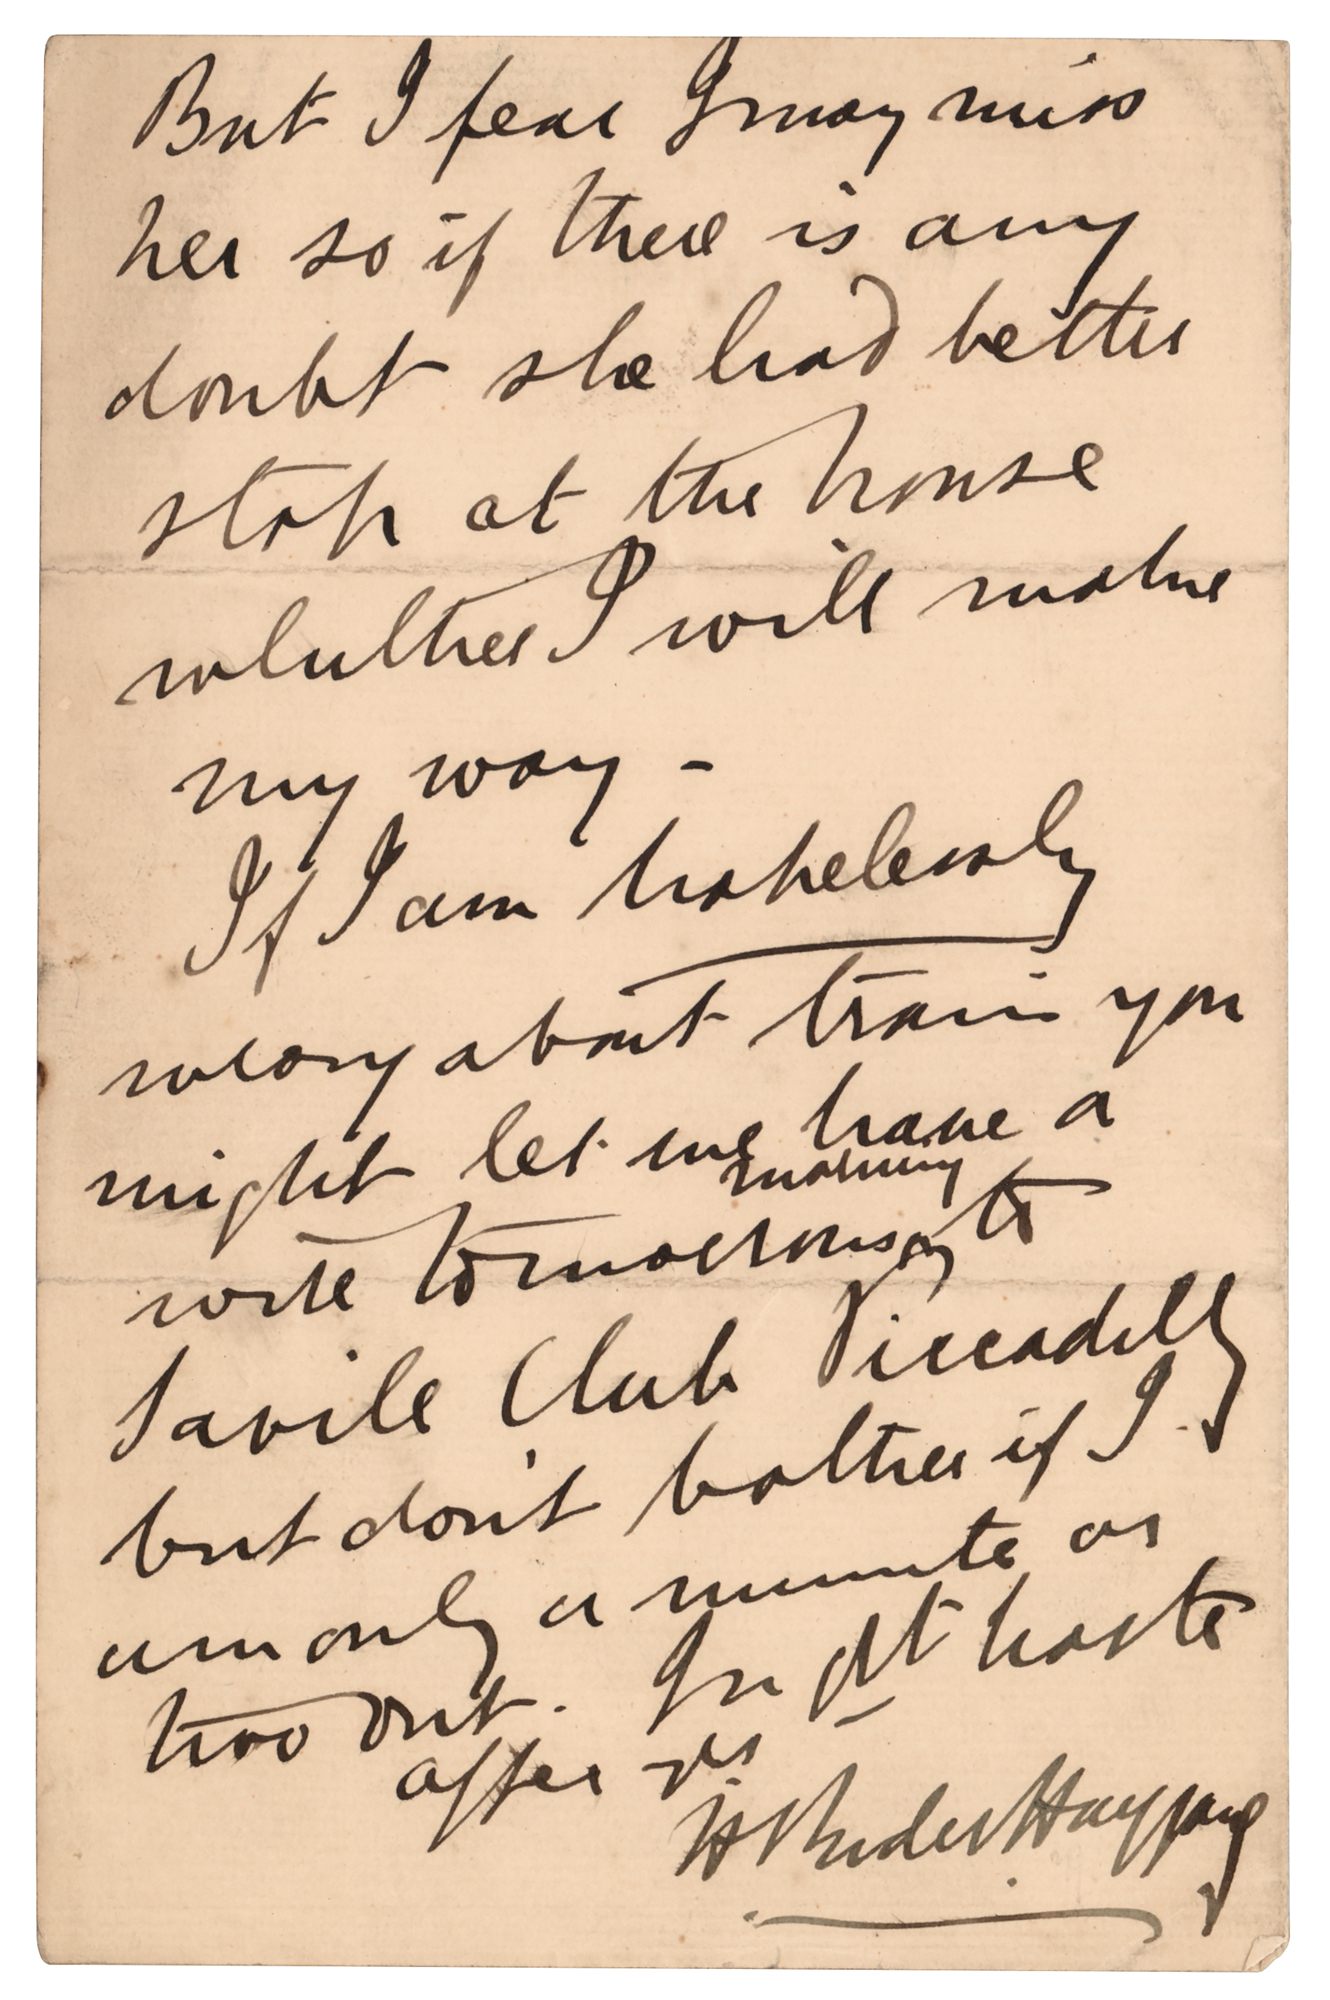 But I fear I may miss
her so if there is any
doubt she had better
stop at the house
whither I will make
my way -
If I am hopelessly
wrong about train you
might let me have a
morning
wire tomorrow to
Savile Club Piccadilly
but don't bother if I
am only a minute or
two out. In gt haste
affec yrs
H Rider Haggard